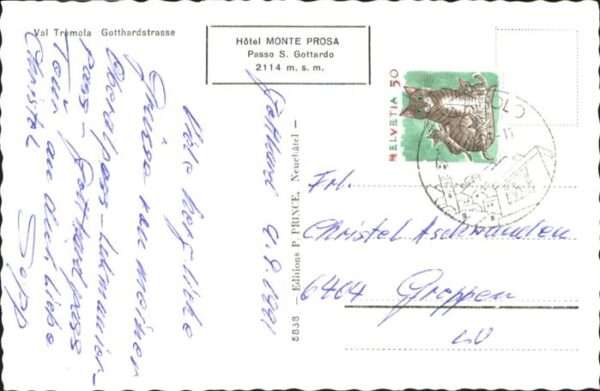 Val Tremola Gotthardstrasse
Hôtel MONTE PROSA
Passo S. Gottardo
2114 m. s. m.
HELVETIA 50
5838 — Editions P. PRINCE, Neuchâtel —
Gotthard 9.9.1991
Viele herzliche
Grüsse von meiner
Oberalppass - Lukmanier-
pass - Gotthardpass
Tour an dich liebe
Christel
Sepp
Frl.
Christel Aschwanden
6404 Greppen
LU